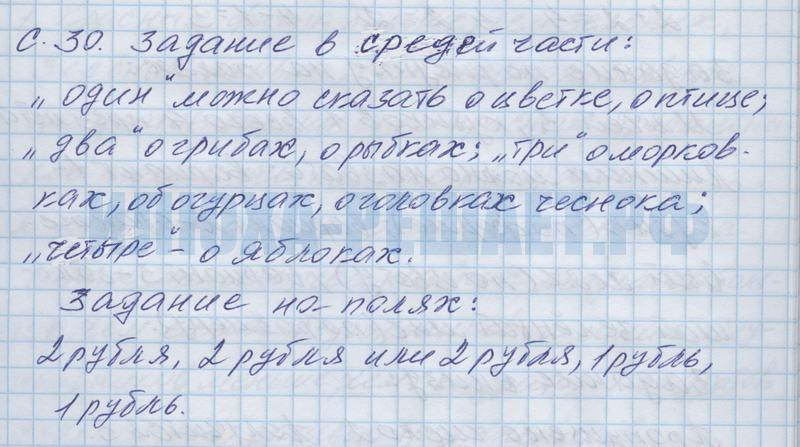 С. 30. Задание в средей части:
„один“ можно сказать о цветке, о птице;
„два“ о грибах, о рыбках; „три“ о морков-
ках, об огурцах, о головках чеснока;
„четыре“ – о яблоках.
Задание на полях:
2 рубля, 2 рубля или 2 рубля, 1 рубль,
1 рубль.